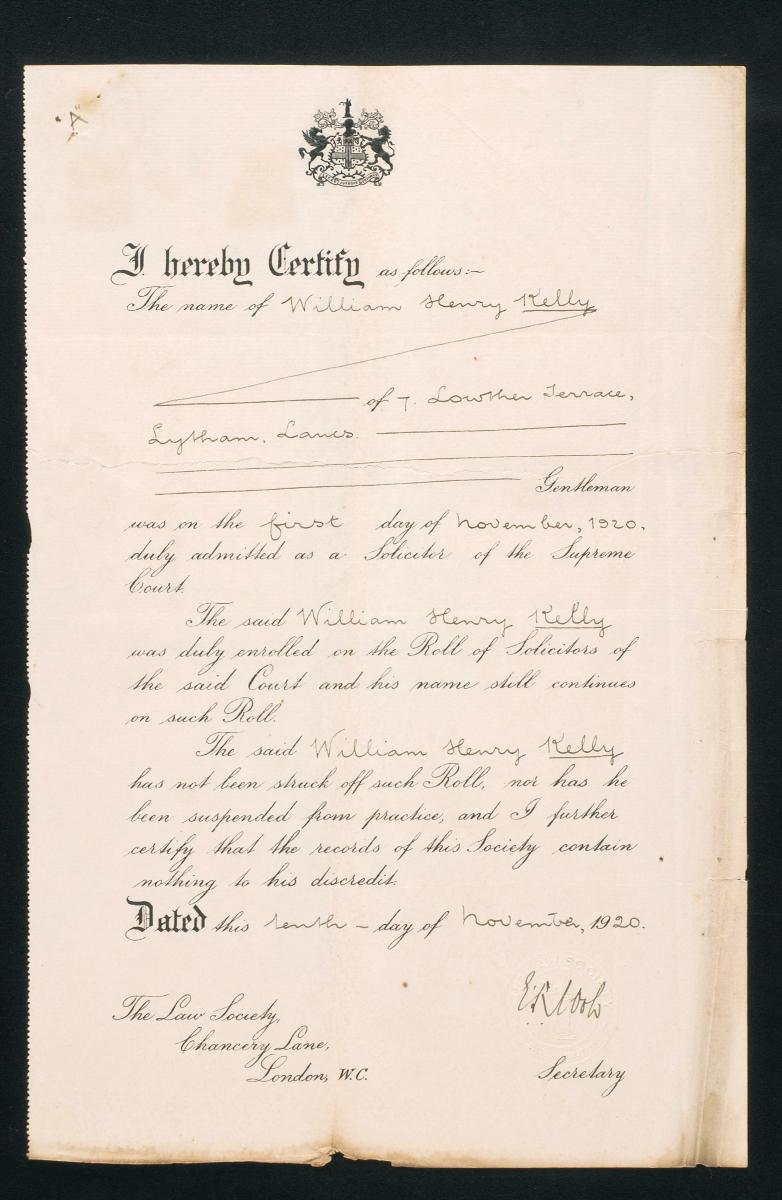 "A"
I hereby Certify as follows:—
The name of William Henry Kelly
of 7. Lowther Terrace,
Lytham, Lancs.
Gentleman
was on the first day of November, 1920.
duly admitted as a Solicitor of the Supreme
Court.
The said William Henry Kelly
was duly enrolled on the Roll of Solicitors of
the said Court and his name still continues
on such Roll.
The said William Henry Kelly
has not been struck off such Roll, nor has he
been suspended from practice, and I further
certify that the records of this Society contain
nothing to his discredit.
Dated this tenth — day of November, 1920.
The Law Society,
Chancery Lane,
London, W.C.
Secretary